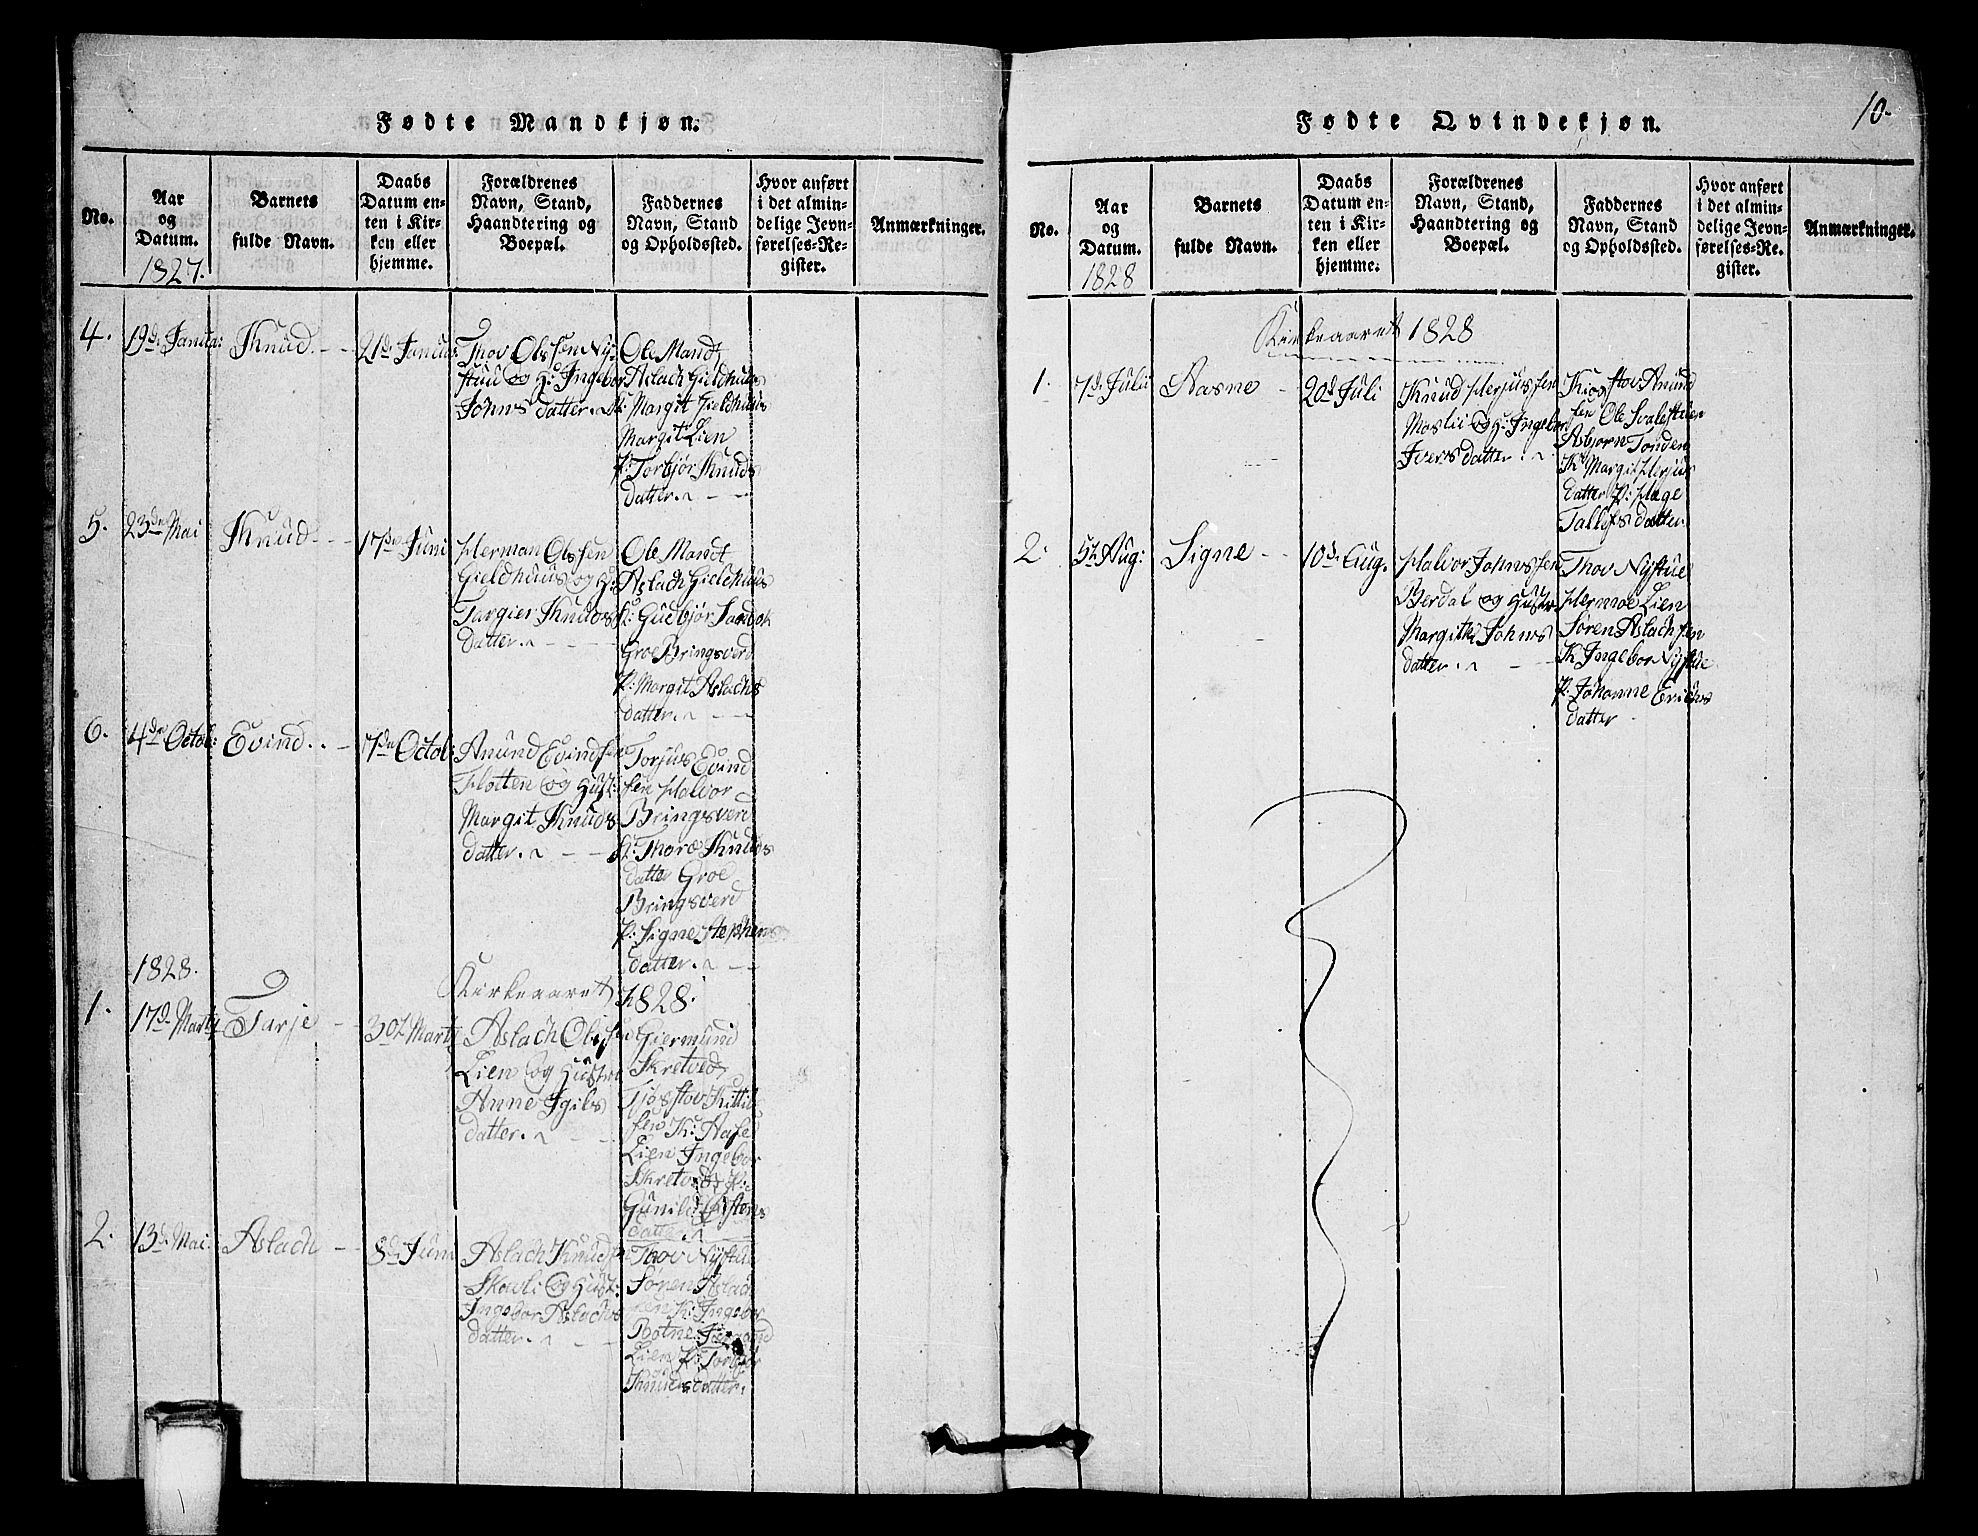 Fødte Mandkjøn.
No.
Aar
og
Datum.
1827.
Barnets
fulde Navn.
Daabs
Datum en-
ten i Kir-
ken eller
hjemme.
Forældrenes
Navn, Stand,
Haandtering og
Boepæl.
Faddernes
Navn, Stand
og Opholdssted.
Hvor anført
i det almin-
delige Jevn-
førelses-Re-
gister.
Anmærkninger.
4.
19d. Janua:
Knud. - -
21d. Januar
Thov Olssen Ny-
stuu og H: Ingebor
Johns datter.
Ole Mandt
Aslach Gieldhuus
K: Margit Gieldhuus
Margit Lien
P: Torbjör Knuds
datter. - -
5.
23de Mai
Knud. - -
17de Juni
Herman Olssen
Gieldhuus og H:
Targier Knuds
datter. - - -
Ole Mandt
Aslach Gieldhuus
K: Gudbjør
Groe Bringsverd
P: Margit Aslachs
datter. - -
6.
4de Octob:
Evind. . -
7de Octob:
Anund Evindsen
Flotten og Hust:
Margit Knuds
datter. - -
Torjus Evind
sen Halvor
Bringsverd
K: Thore Knuds
datter Groe
Bringsverd
P: Signe Stephens
datter. - -
1828.
Kirkeaaret 1828.
1.
17d. Marty
Tarje - -
30t Marty
Aslach Olssen
Lien og Hustru
Anne Igibs
datter. - -
Giermund
Skretved
Tjøstov Kittil
sen K: Aase
Lien Ingebor
Skretved P:
Gunild
datter.
2.
13d. Mai.
Aslach - -
8d. Juni
Aslach Knudsen
Skavli og Hust:
Ingebor Aslachs
datter. - -
Thov Nystue
Søren Aslach
sen K: Ingebor
Botne
Lien P: Torbjør
Knudsdatter.
10.
Fødte Qvindekjøn.
No.
Aar
og
Datum.
1828
Barnets
fulde Navn.
Daabs
Datum en-
ten i Kir-
ken eller
hjemme.
Forældrenes
Navn, Stand,
Haandtering og
Boepæl.
Faddernes
Navn, Stand
og Opholdssted.
Hvor anført
i det almin-
delige Jevn-
førelses-Re-
gister.
Anmærkninger.
Kirkeaaret 1828
1.
7d. Julii
Aasne -
20d. Juli
Knud Herjussen
Moslii og H: Ingebor
Ivers datter.
Anund
sen Ole Svalestuen
Asbjorn Tonden
K: Margit Herjus
datter P: Hæge
Tallefs datter
2.
5t Aug:
Signe - -
10d. Aug.
Halvor Johnssen
Berdal og Hustr:
Margithe Johns
datter. - -
Thov Nystue
Hermoe Lien
Søren Aslachsen
K: Ingebor Nystue
P: Johanne Erichs
datter